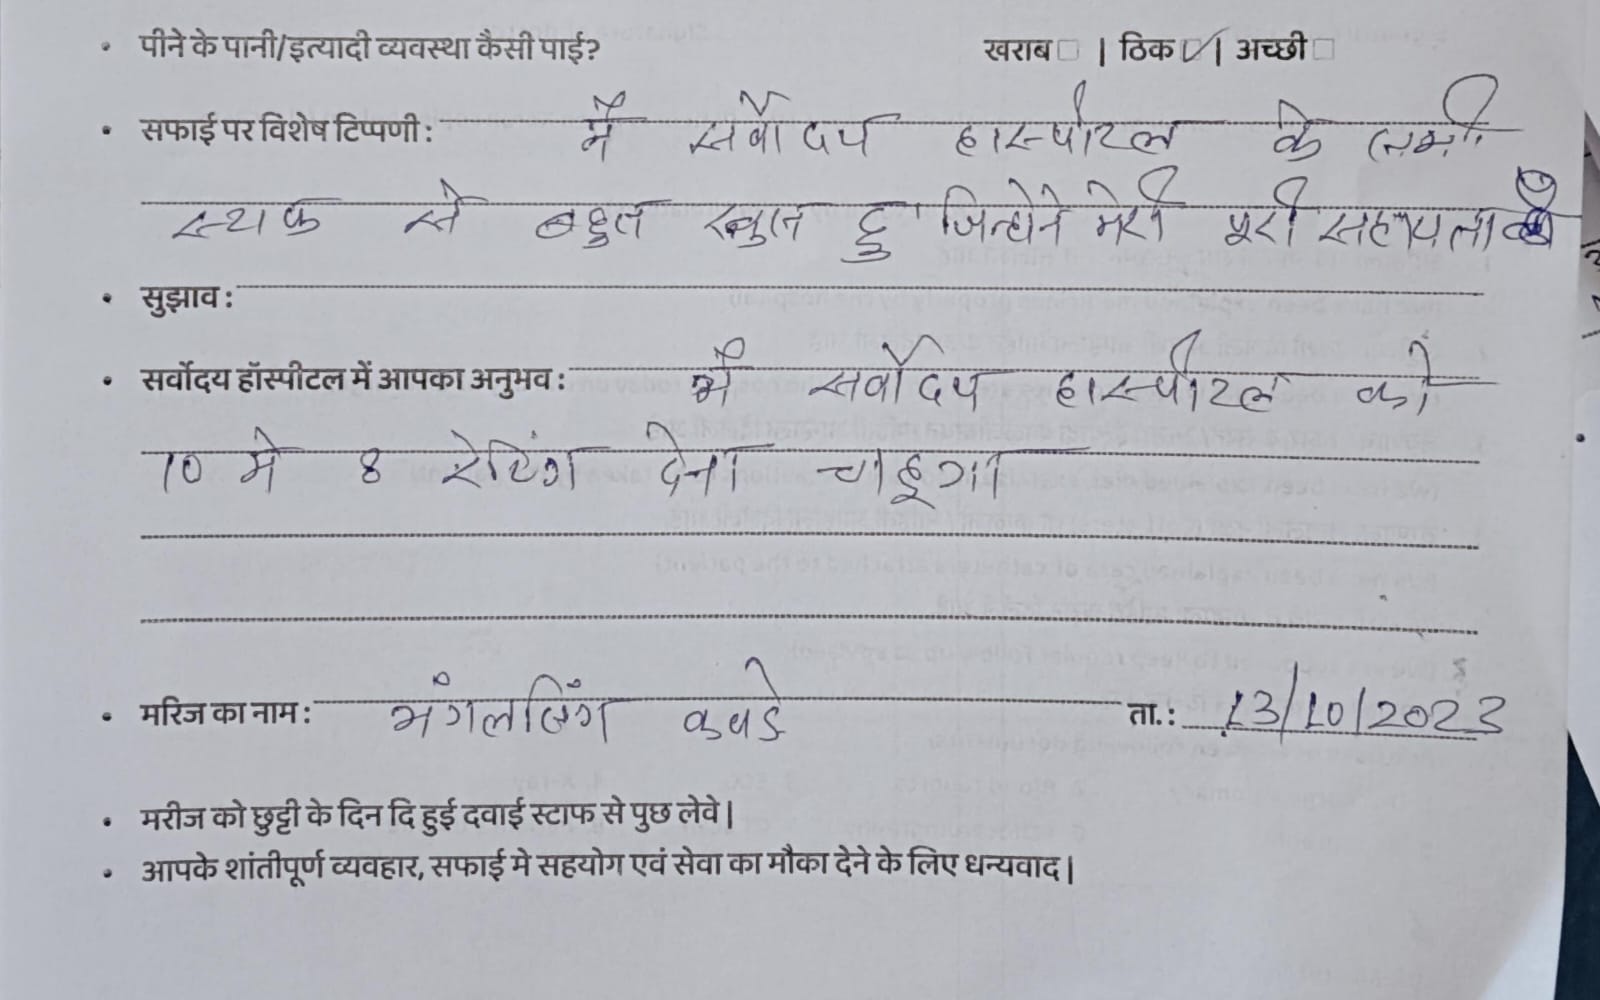 • पीने के पानी/इत्यादी व्यवस्था कैसी पाई? खराब☐ | ठिक☑ | अच्छी☐
• सफाई पर विशेष टिप्पणी : मै सर्वोदय हास्पीटल के सभी
स्टाफ से बहुत खुश हु जिन्होने मेरी पूरी सहायता की
• सुझाव :
• सर्वोदय हॉस्पीटल में आपका अनुभव : मै सर्वोदय हास्पीटल को
10 मे 8 रेटिंग देना चाहूगा
• मरिज का नाम : मंगलजिंग कवडे ता.: 13/10/2023
• मरीज को छुट्टी के दिन दि हुई दवाई स्टाफ से पुछ लेवे |
• आपके शांतीपूर्ण व्यवहार, सफाई मे सहयोग एवं सेवा का मौका देने के लिए धन्यवाद |